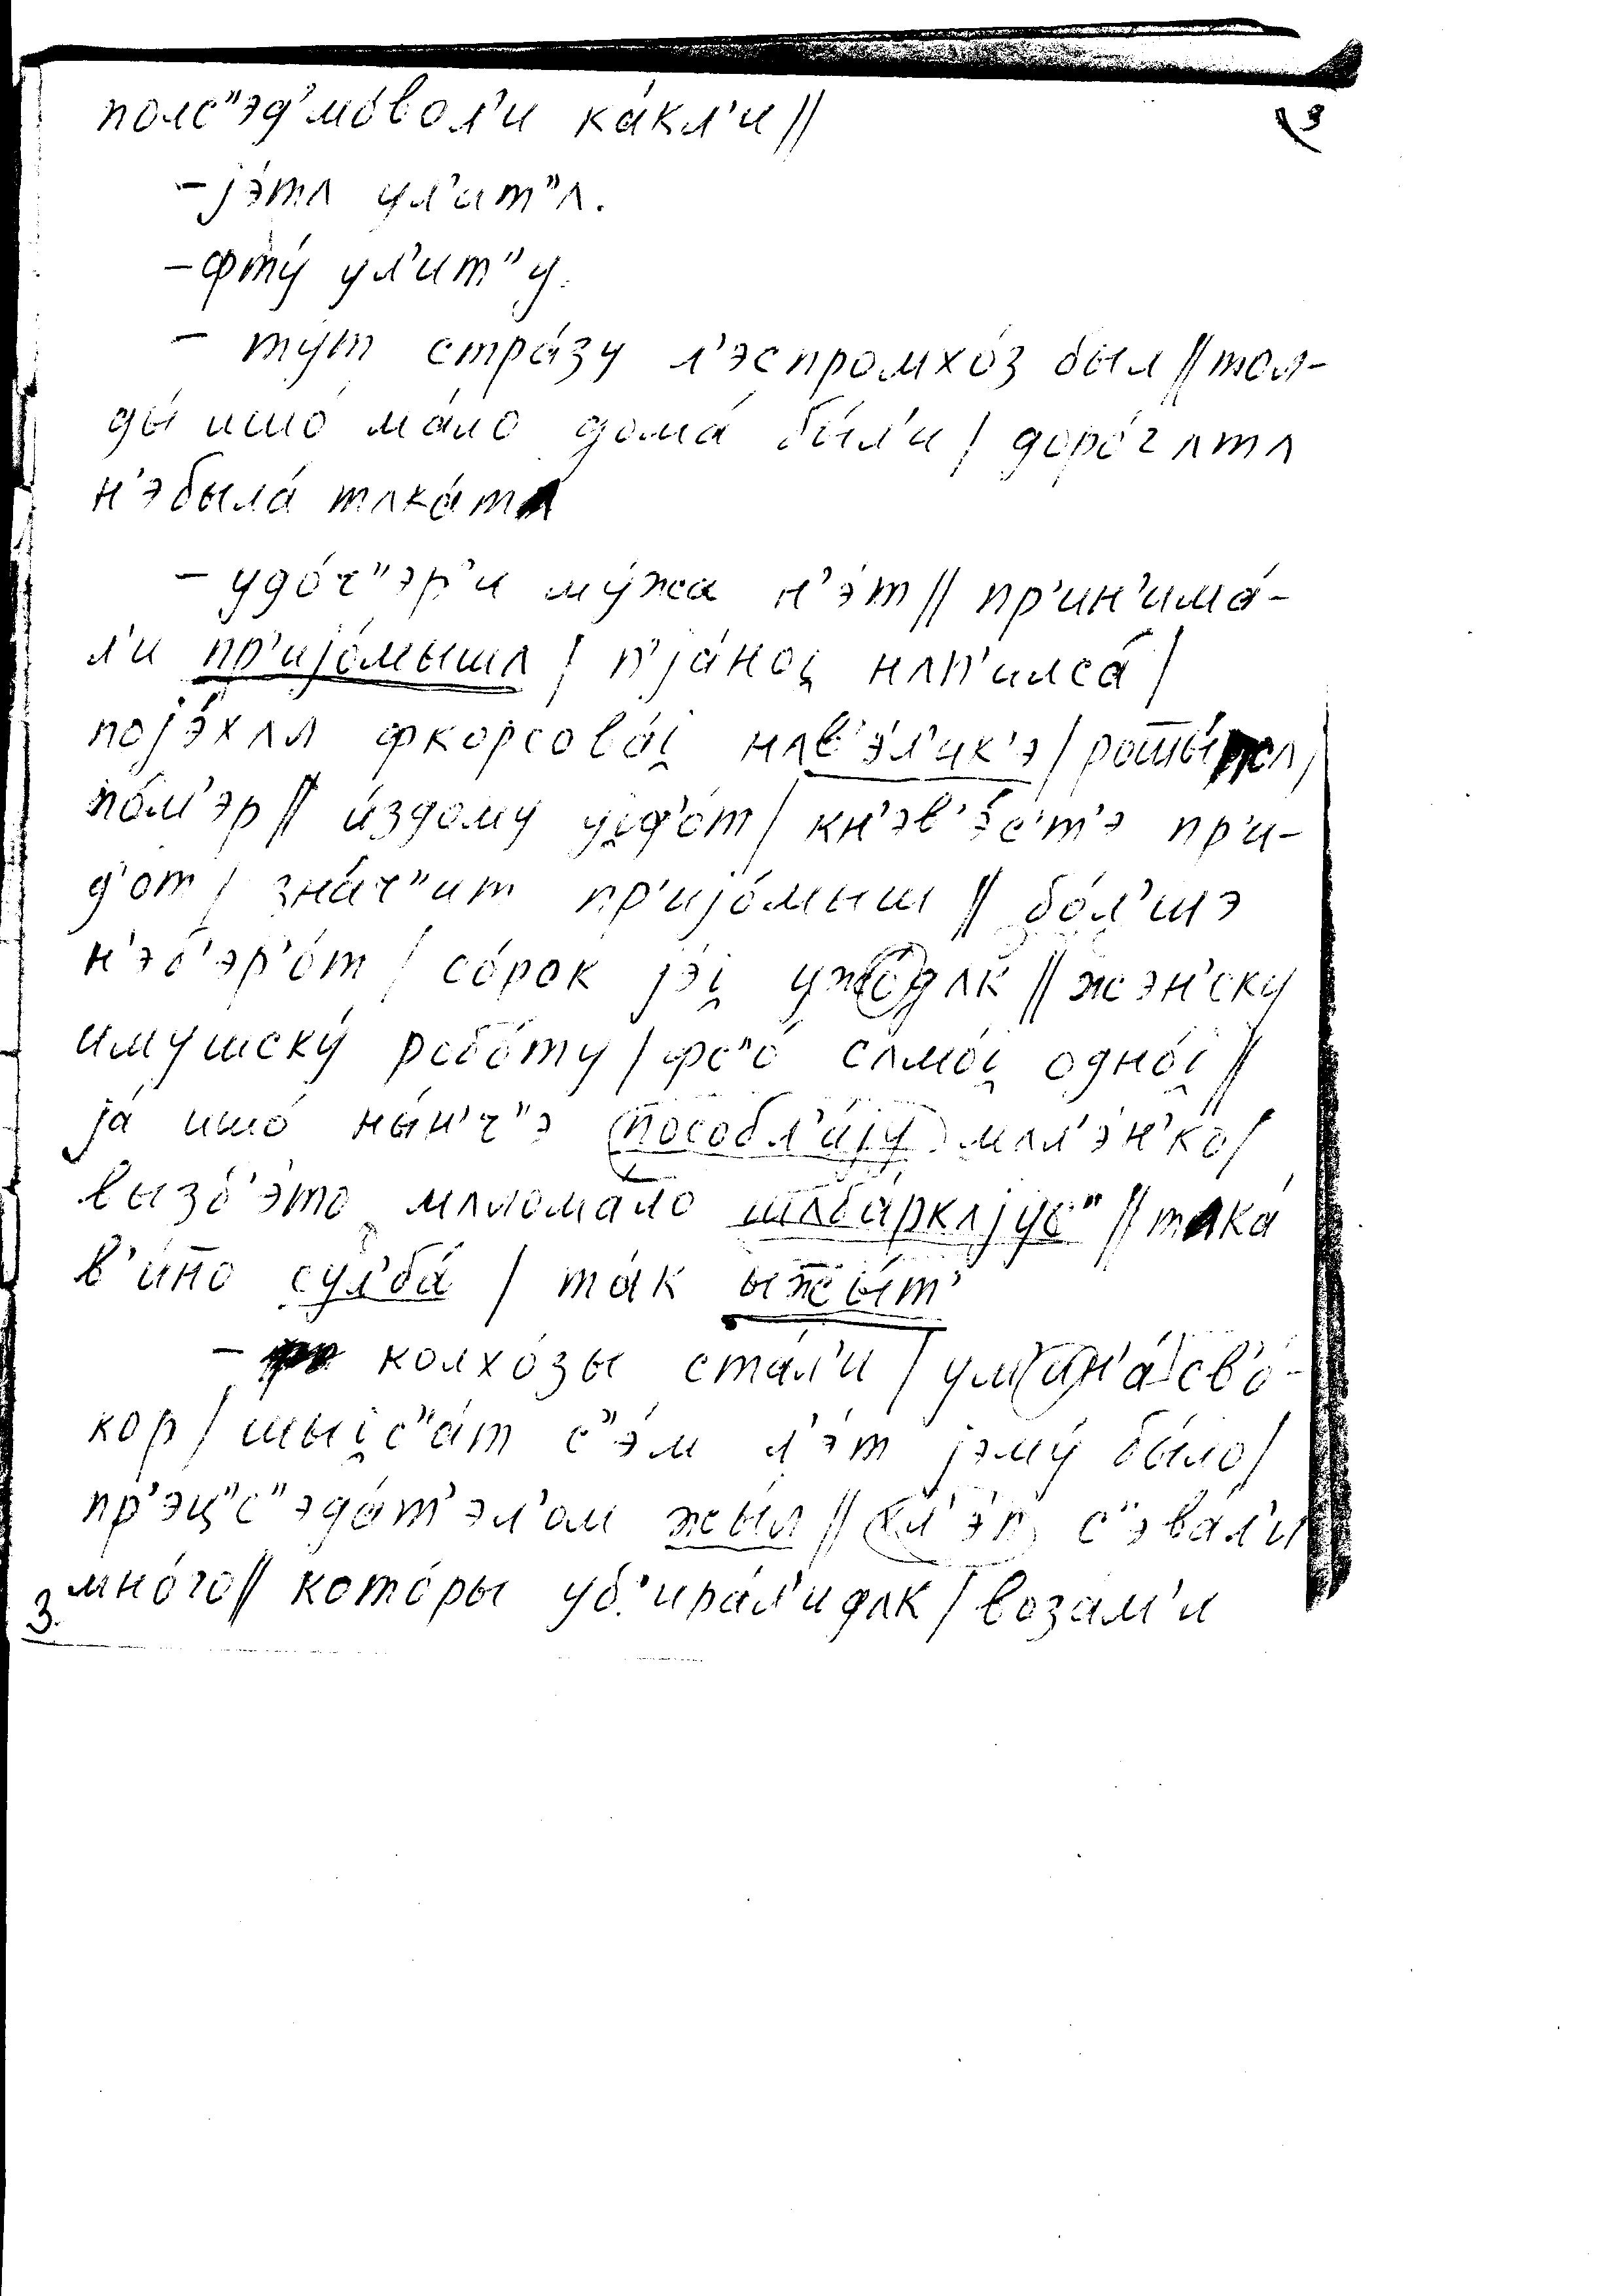 3
полс"эд'мо́вол'и ка́кл'и //
– jэ́тʌ ул'ит"ʌ.
– фту́ ул'ит"у.
– ту́т стра́зу л'эспромхо́з был // тол-
ды́ ишо́ ма́ло дома́ бы́л'и / доро́гʌтʌ
н'эбыла́ тʌка́тʌ
– удо́ч"эр'и му́жа н'э́т // пр'ин'има́-
л'и пр'иjо́мышʌ / п'jа́ноi̯ нʌп'илса́ /
поjэ́хʌл фкорсово́i̯ нʌв'э́л'ик'э /
по́м'эр // и́здому уi̯д'о́т / кн'эв'э́с'т'э пр'и-
д'от / зна́ч"ит пр'иjо́мыш // бо́л'шэ
н'эб'эр'о́т / со́рок jэi̯ ужодʌк // жэн'ску
имушску́ робо́ту / фс"о́ сʌмо́i̯ одно́i̯ //
jа́ ишо́ ны́н'ч"э пособл'а́jу мʌл'э́н'ко /
вызб'э́то мʌломало шʌба́ркʌjус" // тʌка́
в'и́но сул'ба́ / та́к ыжы́т'
– колхо́зы ста́л'и / ум'ин'а́ св'о́-
кор / шыi̯с"а́т с"э́м л'э́т jэму́ бы́ло /
пр'эц"с"эда́т'эл'ом жы́л // хл'э́п с"эва́л'и
мно́го // кото́ры уб'ира́л'идʌк / возам'и
3.